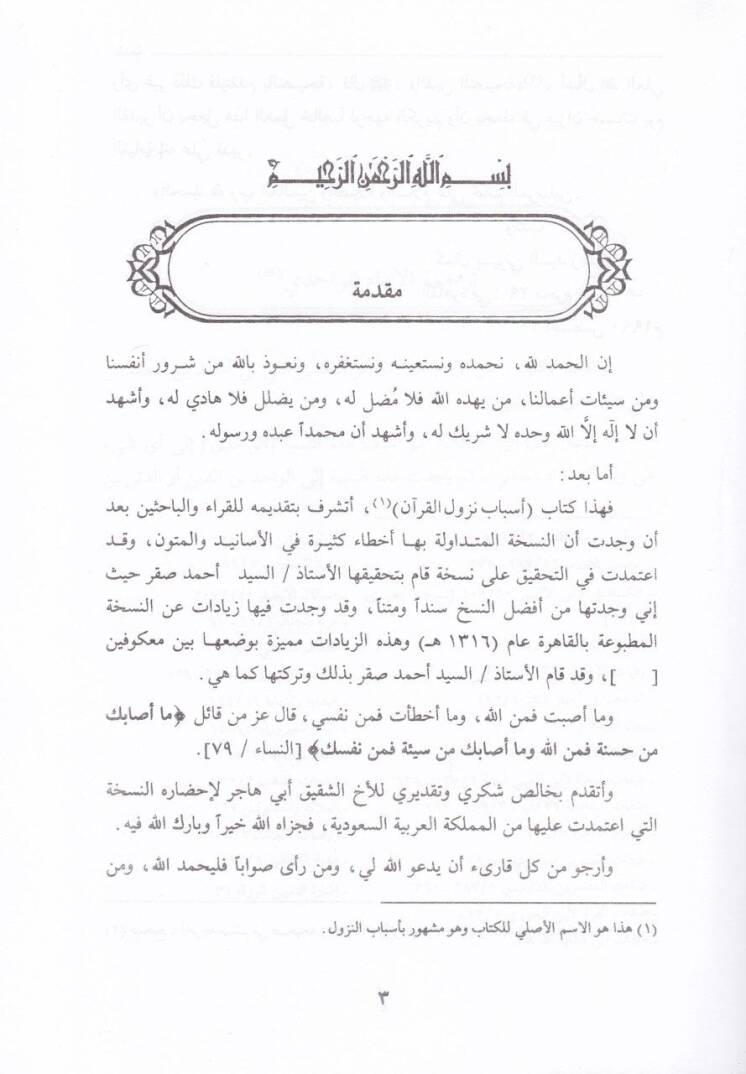 بسم الله الرحمن الرحيم
مقدمة
إن الحمد لله، نحمده ونستعينه ونستغفره، ونعوذ بالله من شرور أنفسنا
ومن سيئات أعمالنا، من يهده الله فلا مُضل له، ومن يضلل فلا هادي له، وأشهد
أن لا إلٰه إلَّا الله وحده لا شريك له، وأشهد أن محمداً عبده ورسوله.
أما بعد:
فهذا كتاب (أسباب نزول القرآن)(١)، أتشرف بتقديمه للقراء والباحثين بعد
أن وجدت أن النسخة المتداولة بها أخطاء كثيرة في الأسانيد والمتون، وقد
اعتمدت في التحقيق على نسخة قام بتحقيقها الأستاذ / السيد أحمد صقر حيث
إني وجدتها من أفضل النسخ سنداً ومتناً، وقد وجدت فيها زيادات عن النسخة
المطبوعة بالقاهرة عام (١٣١٦ هـ) وهذه الزيادات مميزة بوضعها بين معكوفين
[ ]، وقد قام الأستاذ / السيد أحمد صقر بذلك وتركتها كما هي.
وما أصبت فمن الله، وما أخطأت فمن نفسي، قال عز من قائل ﴿ما أصابك
من حسنة فمن الله وما أصابك من سيئة فمن نفسك﴾ [النساء / ٧٩].
وأتقدم بخالص شكري وتقديري للأخ الشقيق أبي هاجر لإحضاره النسخة
التي اعتمدت عليها من المملكة العربية السعودية، فجزاه الله خيراً وبارك الله فيه.
وأرجو من كل قارىء أن يدعو الله لي، ومن رأى صواباً فليحمد الله، ومن
(١) هذا هو الاسم الأصلي للكتاب وهو مشهور بأسباب النزول.
٣